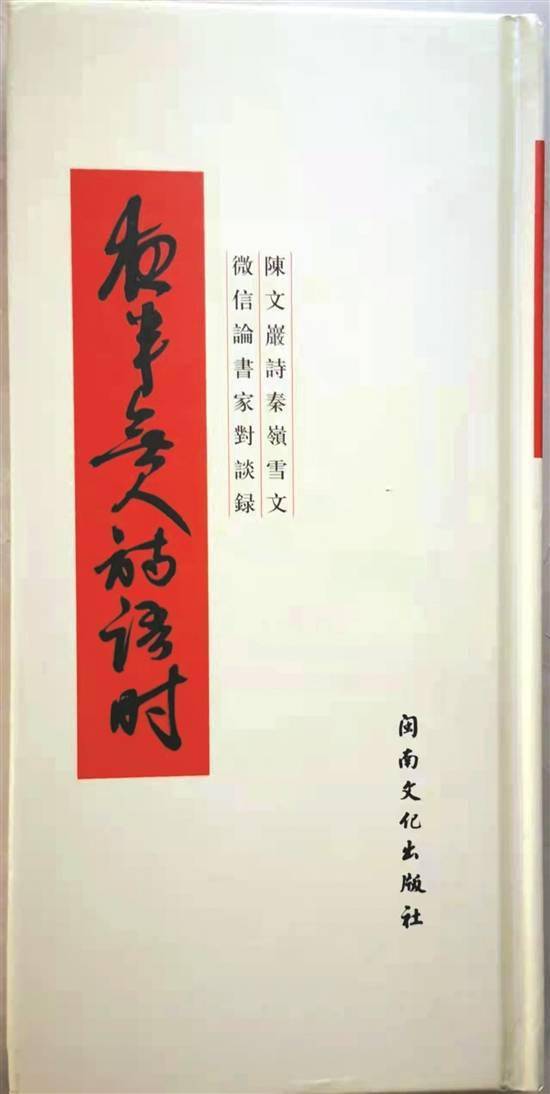 夜半無人诗语时
陳文巖詩秦嶺雪文
微信論書家對談録
闽南文化出版社